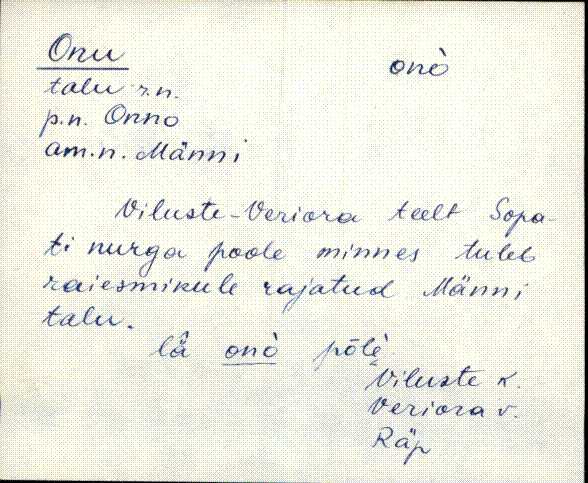 Onu
onò
talu r.n.
p.n. Onno
am.n. Männi
Viluste-Veriora teelt Sopa-
ti nurga poole minnes tuleb
raiesmikule rajatud Männi
talu.
lä̂ onò pōlè
Viluste k.
Veriora v.
Räp